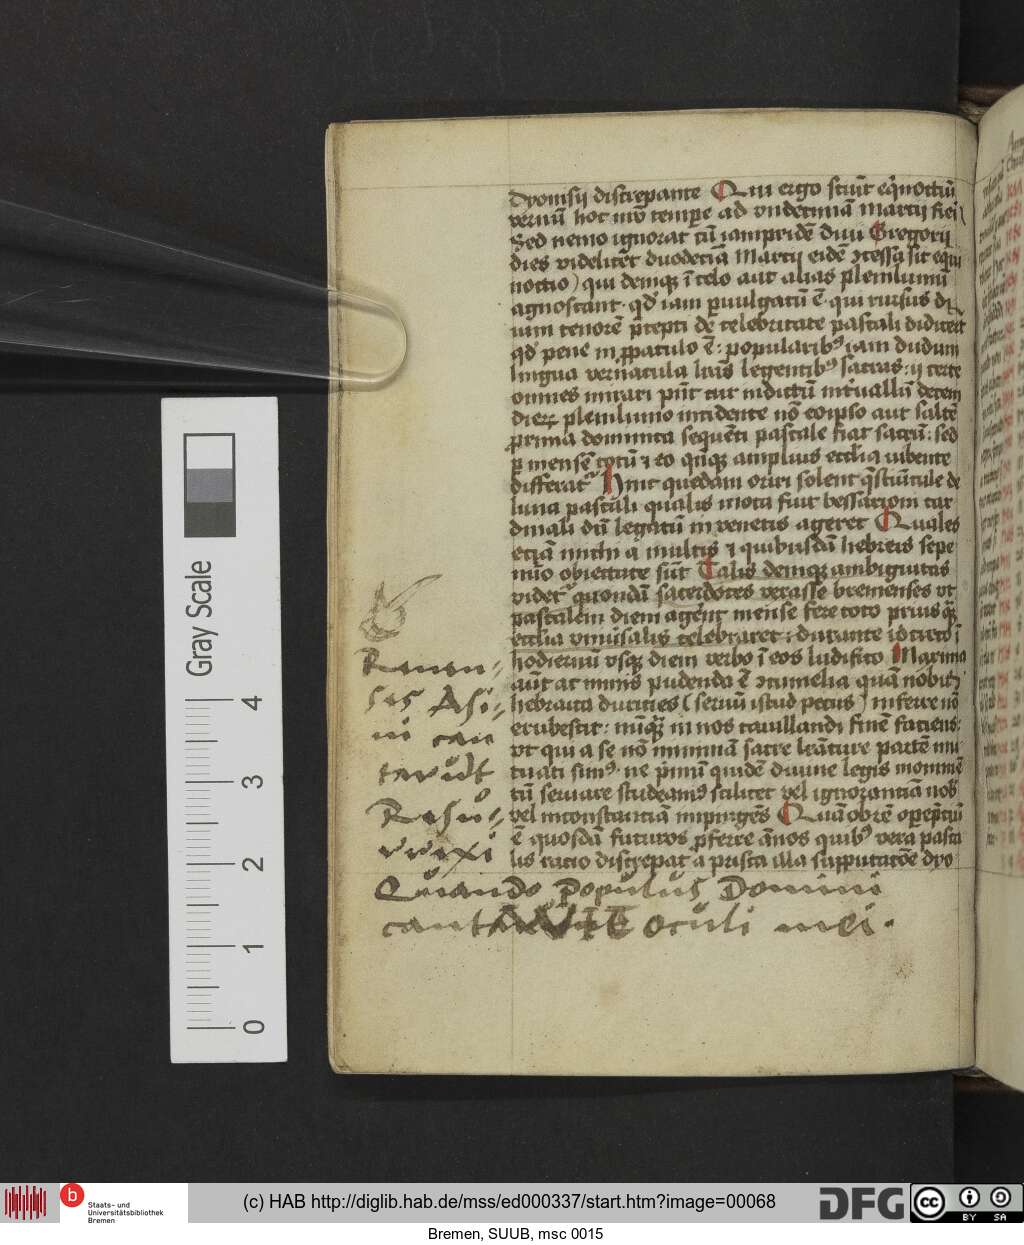 dyonisij discrepante Qui ergo sciūt eq̄noctiū
vernū hoc nr̄o tempore ad vndecimā marcij fieri
Sed nemo ignorat cū iampridē diui Gregorij
dies videlicet duodecīa Marcij eidē ɔcessa sit equi
noctio) qui demq̄ ī celo aut alias plenilumū
agnoscant· qd̄ iam puulgatū ē qui rursus di
uum tenorē p̄cepti de celebritate pascali didicerūt
qd̄ pene in ppatulo ē: popularibꝰ iam dudum
lingua vernacula lr̄is legentibꝰ sacras: ij certe
omnes mirari pn̄t cur indictū int̄uallū decem
dieꝝ plenilumio incidente nō eoipso aut saltē
prima dominica sequēti pascale fiat sacrū: sed
p mensē totū ⁊ eo qn̄q̄ amplius eccl̄ia iubente
differat Hinc quedam oriri solent q̄stiūcule de
luna pascali qualis mota fuit bessarioni car
dinali dū legatū in venetis ageret Quales
eciā michi a multis ⁊ quibusdā hebreis sepe
nūo obiectate sūt Talis demq̄ ambiguitas
videt̄ quondā sacerdotes vexasse bremenses vt
pascalem diem agent mense fere toto prius q̄
eccl̄ia vniūsalis celebraret: durante id circo ī
hodiernū vsq̄ diem verbo ī eos ludifico Maxima
aūt ac nimis pudenda ē ɔtumelia quā nobis
hebraica duricies (seruū istud pecus) inferre nō
erubescit: nūq̄ in nos cauillandi finē faciens:
vt qui a se nō minimā sacre lr̄ature partē mu
tuati simꝰ· ne p̄mū quidē diuine legis momme
tū seruare studeamꝰ scilicet vel ignorantiā nob̄
vel inconstantiā impinges Quā obrē opep̄ciū
ē quosdā futuros pferre ānos quibꝰ vera pasca
lis racio discrepat a prisca illa supputacōe dyo
Asi
ni can
tavūt
Quando populus Domini
cantaVIT oculi mei.
Gray Scale
4
3
2
1
0
b
Staats- und
Universitätsbibliothek
Bremen
(c) HAB http://diglib.hab.de/mss/ed000337/start.htm?image=00068
DFG
cc
BY SA
Bremen, SUUB, msc 0015